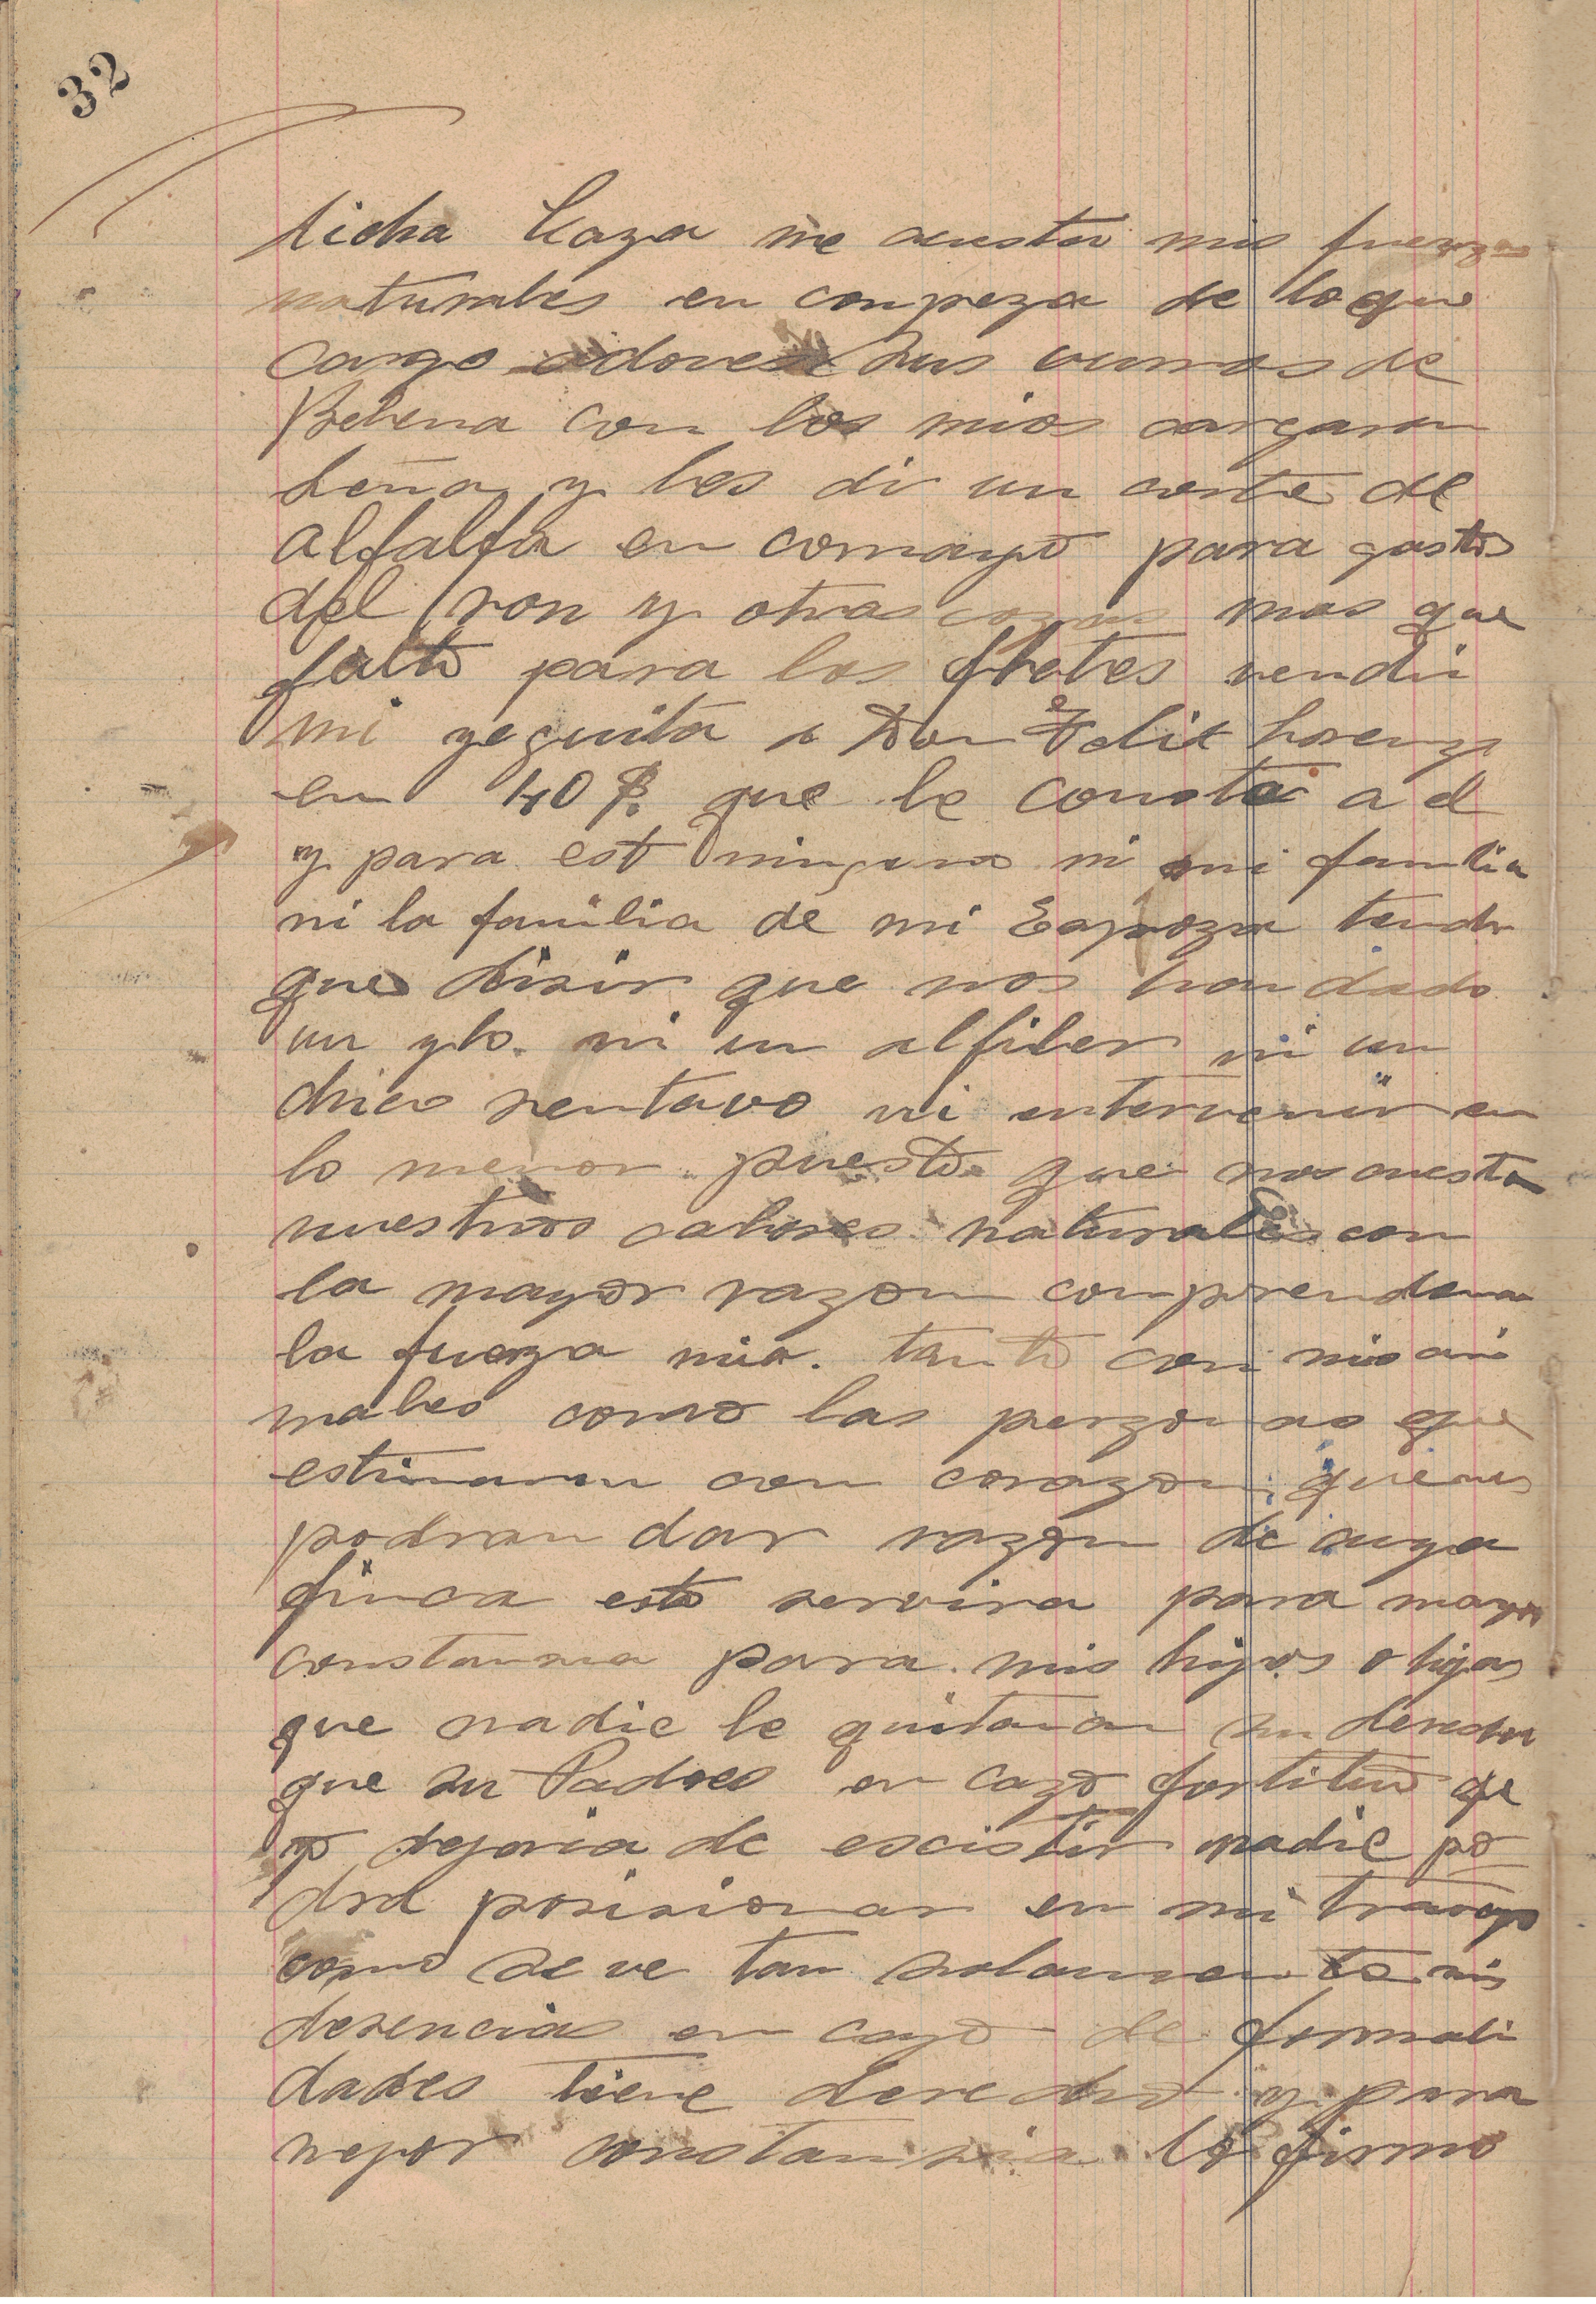 32
dicha Caza me acusta mis fuerzas
naturales en conpeza de lo que
cargo adoves sus vurros de
Belena con los mios cargaron
Leña y les di un corte de
alfalfa en comayo para gastos
del ron y otras cozas mas que
falto para los fletes vendi
mi yeguita a Don Felix Lorenzo
en 40 $. que le consta a el
y para esto ninguno ni mi familia
ni la familia de mi Espoza tendra
que disir que nos han dado
un ylo. ni un alfiler ni un
chico sentavo ni entervenir en
lo menor. puesto que nos cuesta
nuestros calores naturales con
la mayor razon comprenderan
la fuerza mia. tanto con mis ani
males como las perzonas que
estimaron con corazon, quienes
podran dar razon de cuya
finca esto servira para mayor
constansia para mis hijos o hijas
que nadie le quitaran su derecho
que su Padres en cazo fortituo qe
yo dejaria de escistir nadie po
dra posisionar en mi travajo
como se ve tan solamente mis
desencias en cazo de formali
dades tiene derecho y para
mejor constansia lo firmo